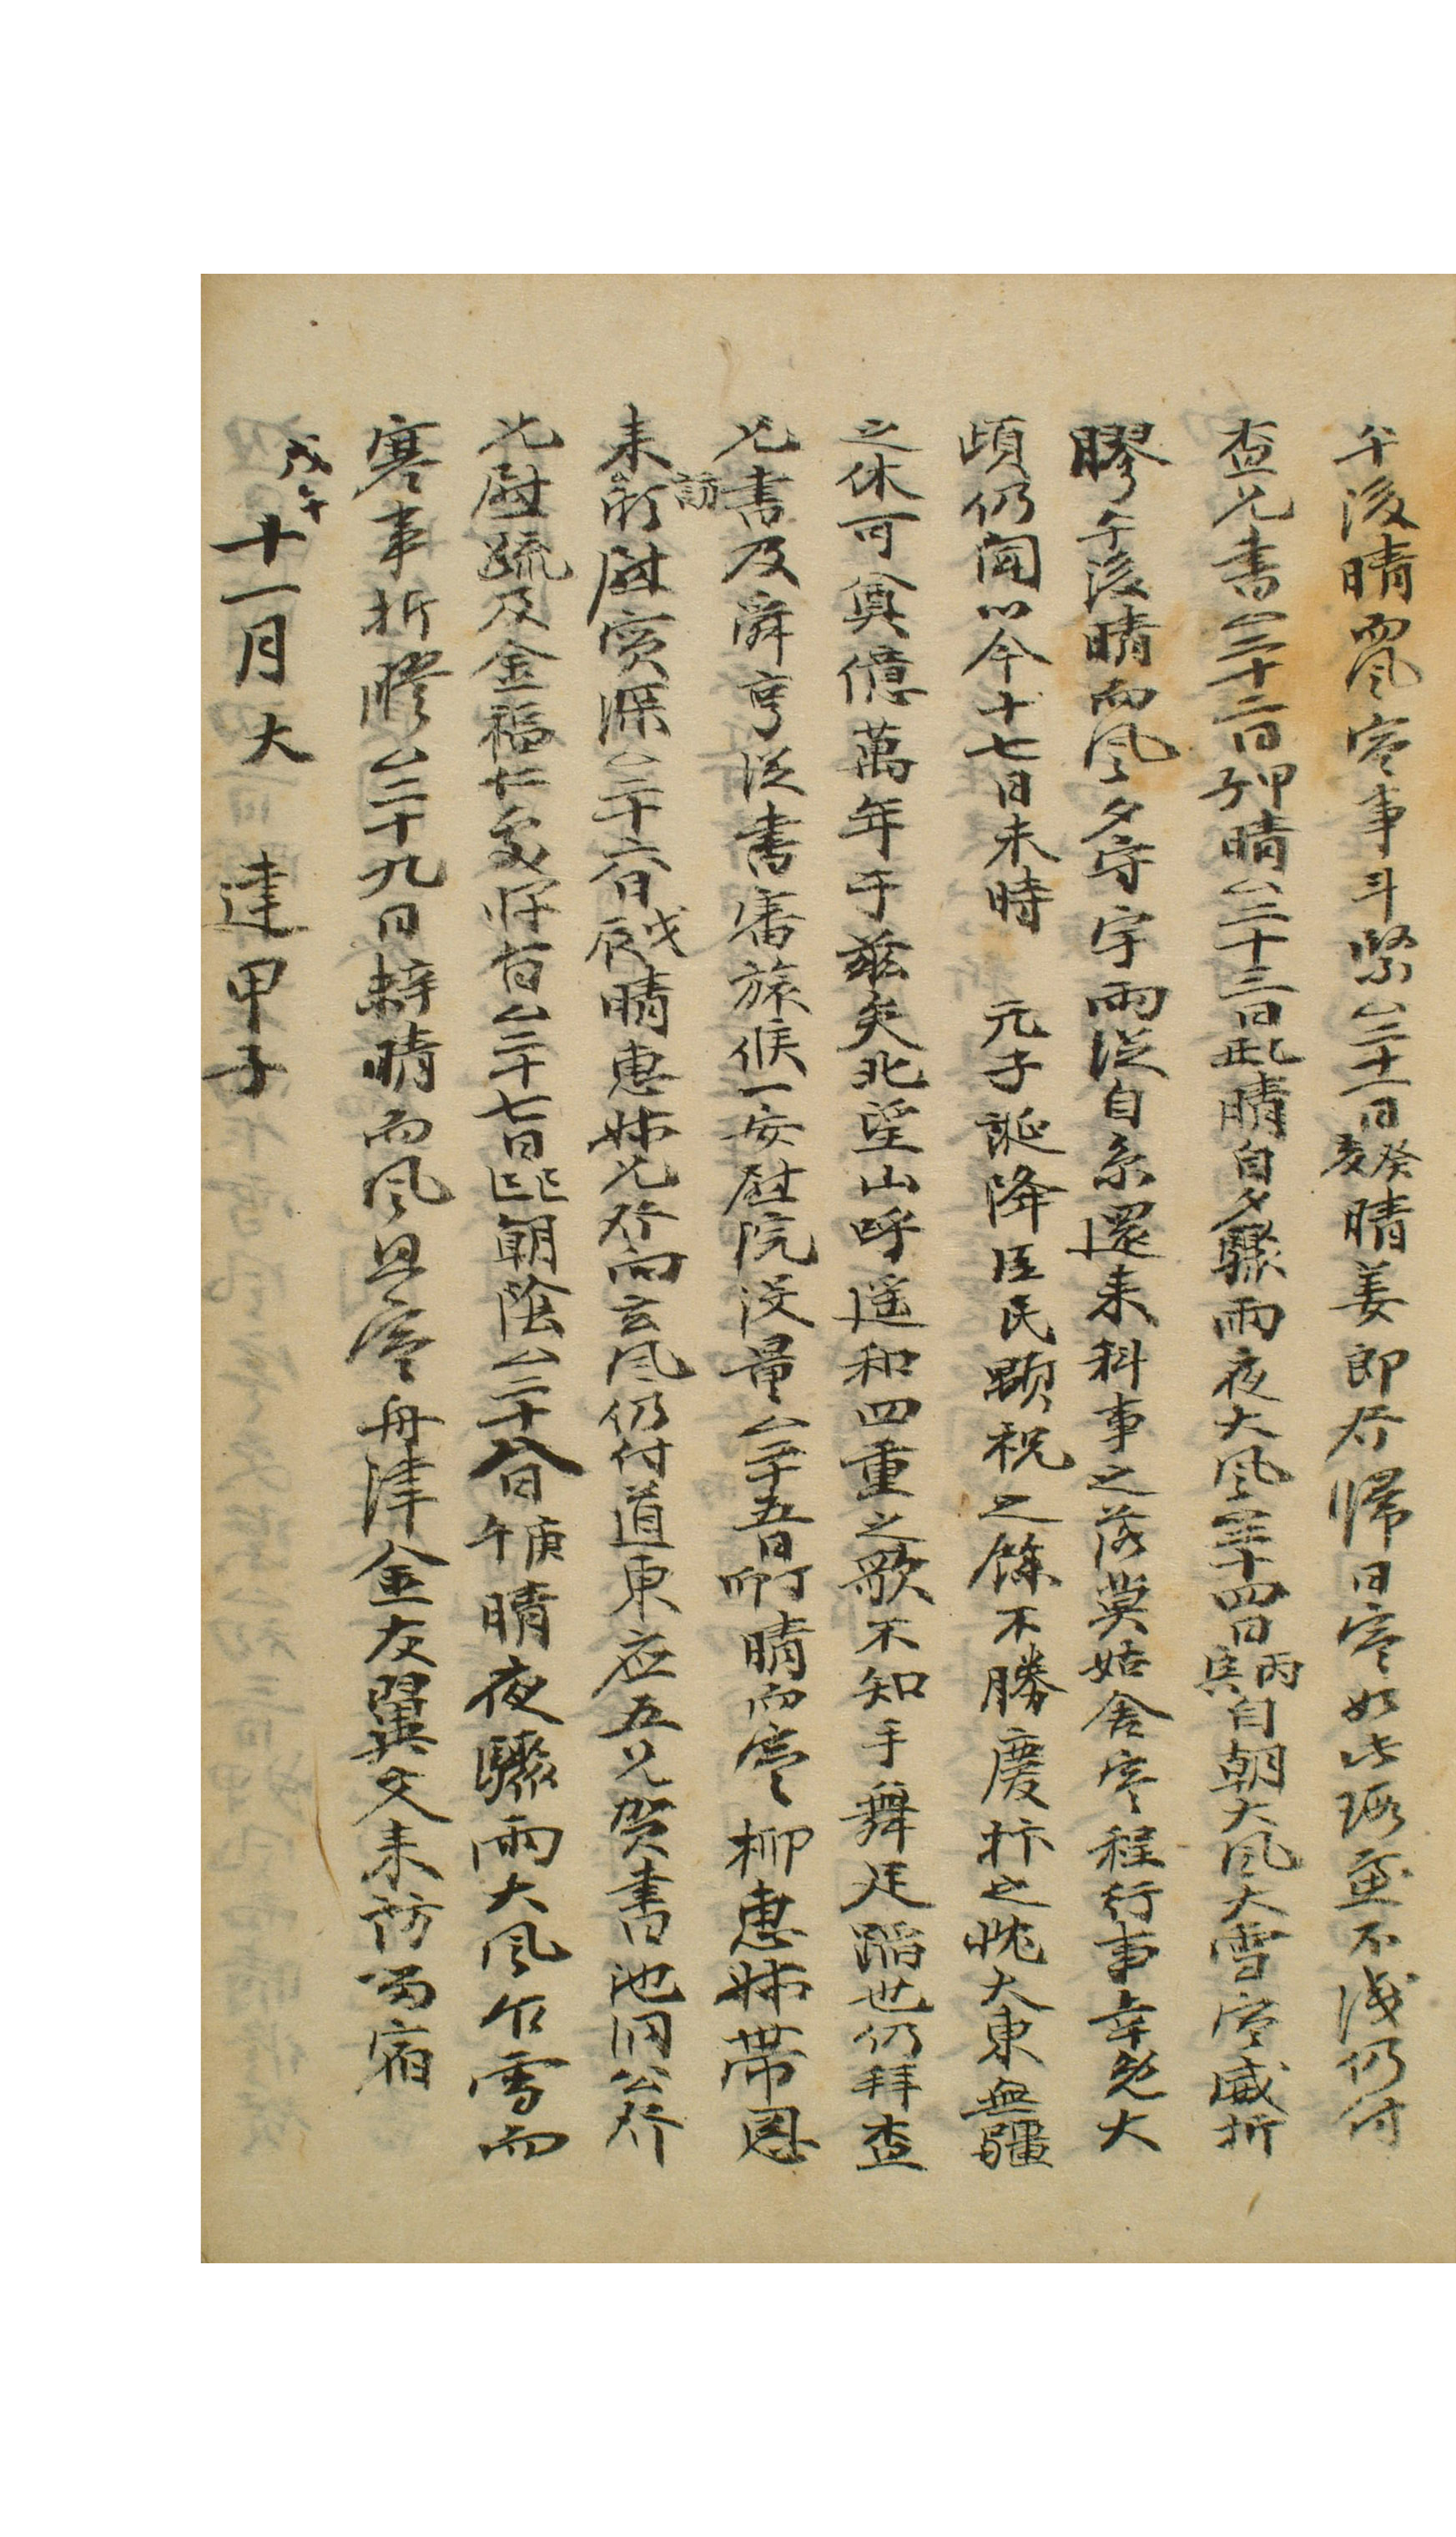 午後晴而風寒事斗緊△二十一日癸亥晴姜郎告歸日寒如此瑕慮不淺仍付
査兄書△二十二日甲子晴△二十三日乙丑晴自夕驟雨夜大風△二十四日丙寅自朝大風大雪寒威折
膠午後晴而風夕守宇兩從自京還來科事之落莫姑舍寒程行事幸免大
頃仍聞以今十七日未時 元子誕降臣民顒祝之餘不勝慶抃之忱大東無疆
之休可奠億萬年于玆矣北望山呼遥和四重之歌不知手舞足蹈也仍拜査
兄書及舜亨從書審旅候一安慰浣沒量△二十五日丁卯晴而寒柳惠姊帶恩
來訪慰實深△二十六日戊辰晴惠姊兄行向玄風仍付道東應五兄賀書池洞公行
兄慰疏及金福仁處牌旨△二十七日己巳朝陰△二十八日庚午晴夜驟雨大風乍雪而
寒事折膠△二十九日辛未晴而風且寒舟津金友翼文來訪留宿
戊午十一月大 建甲子